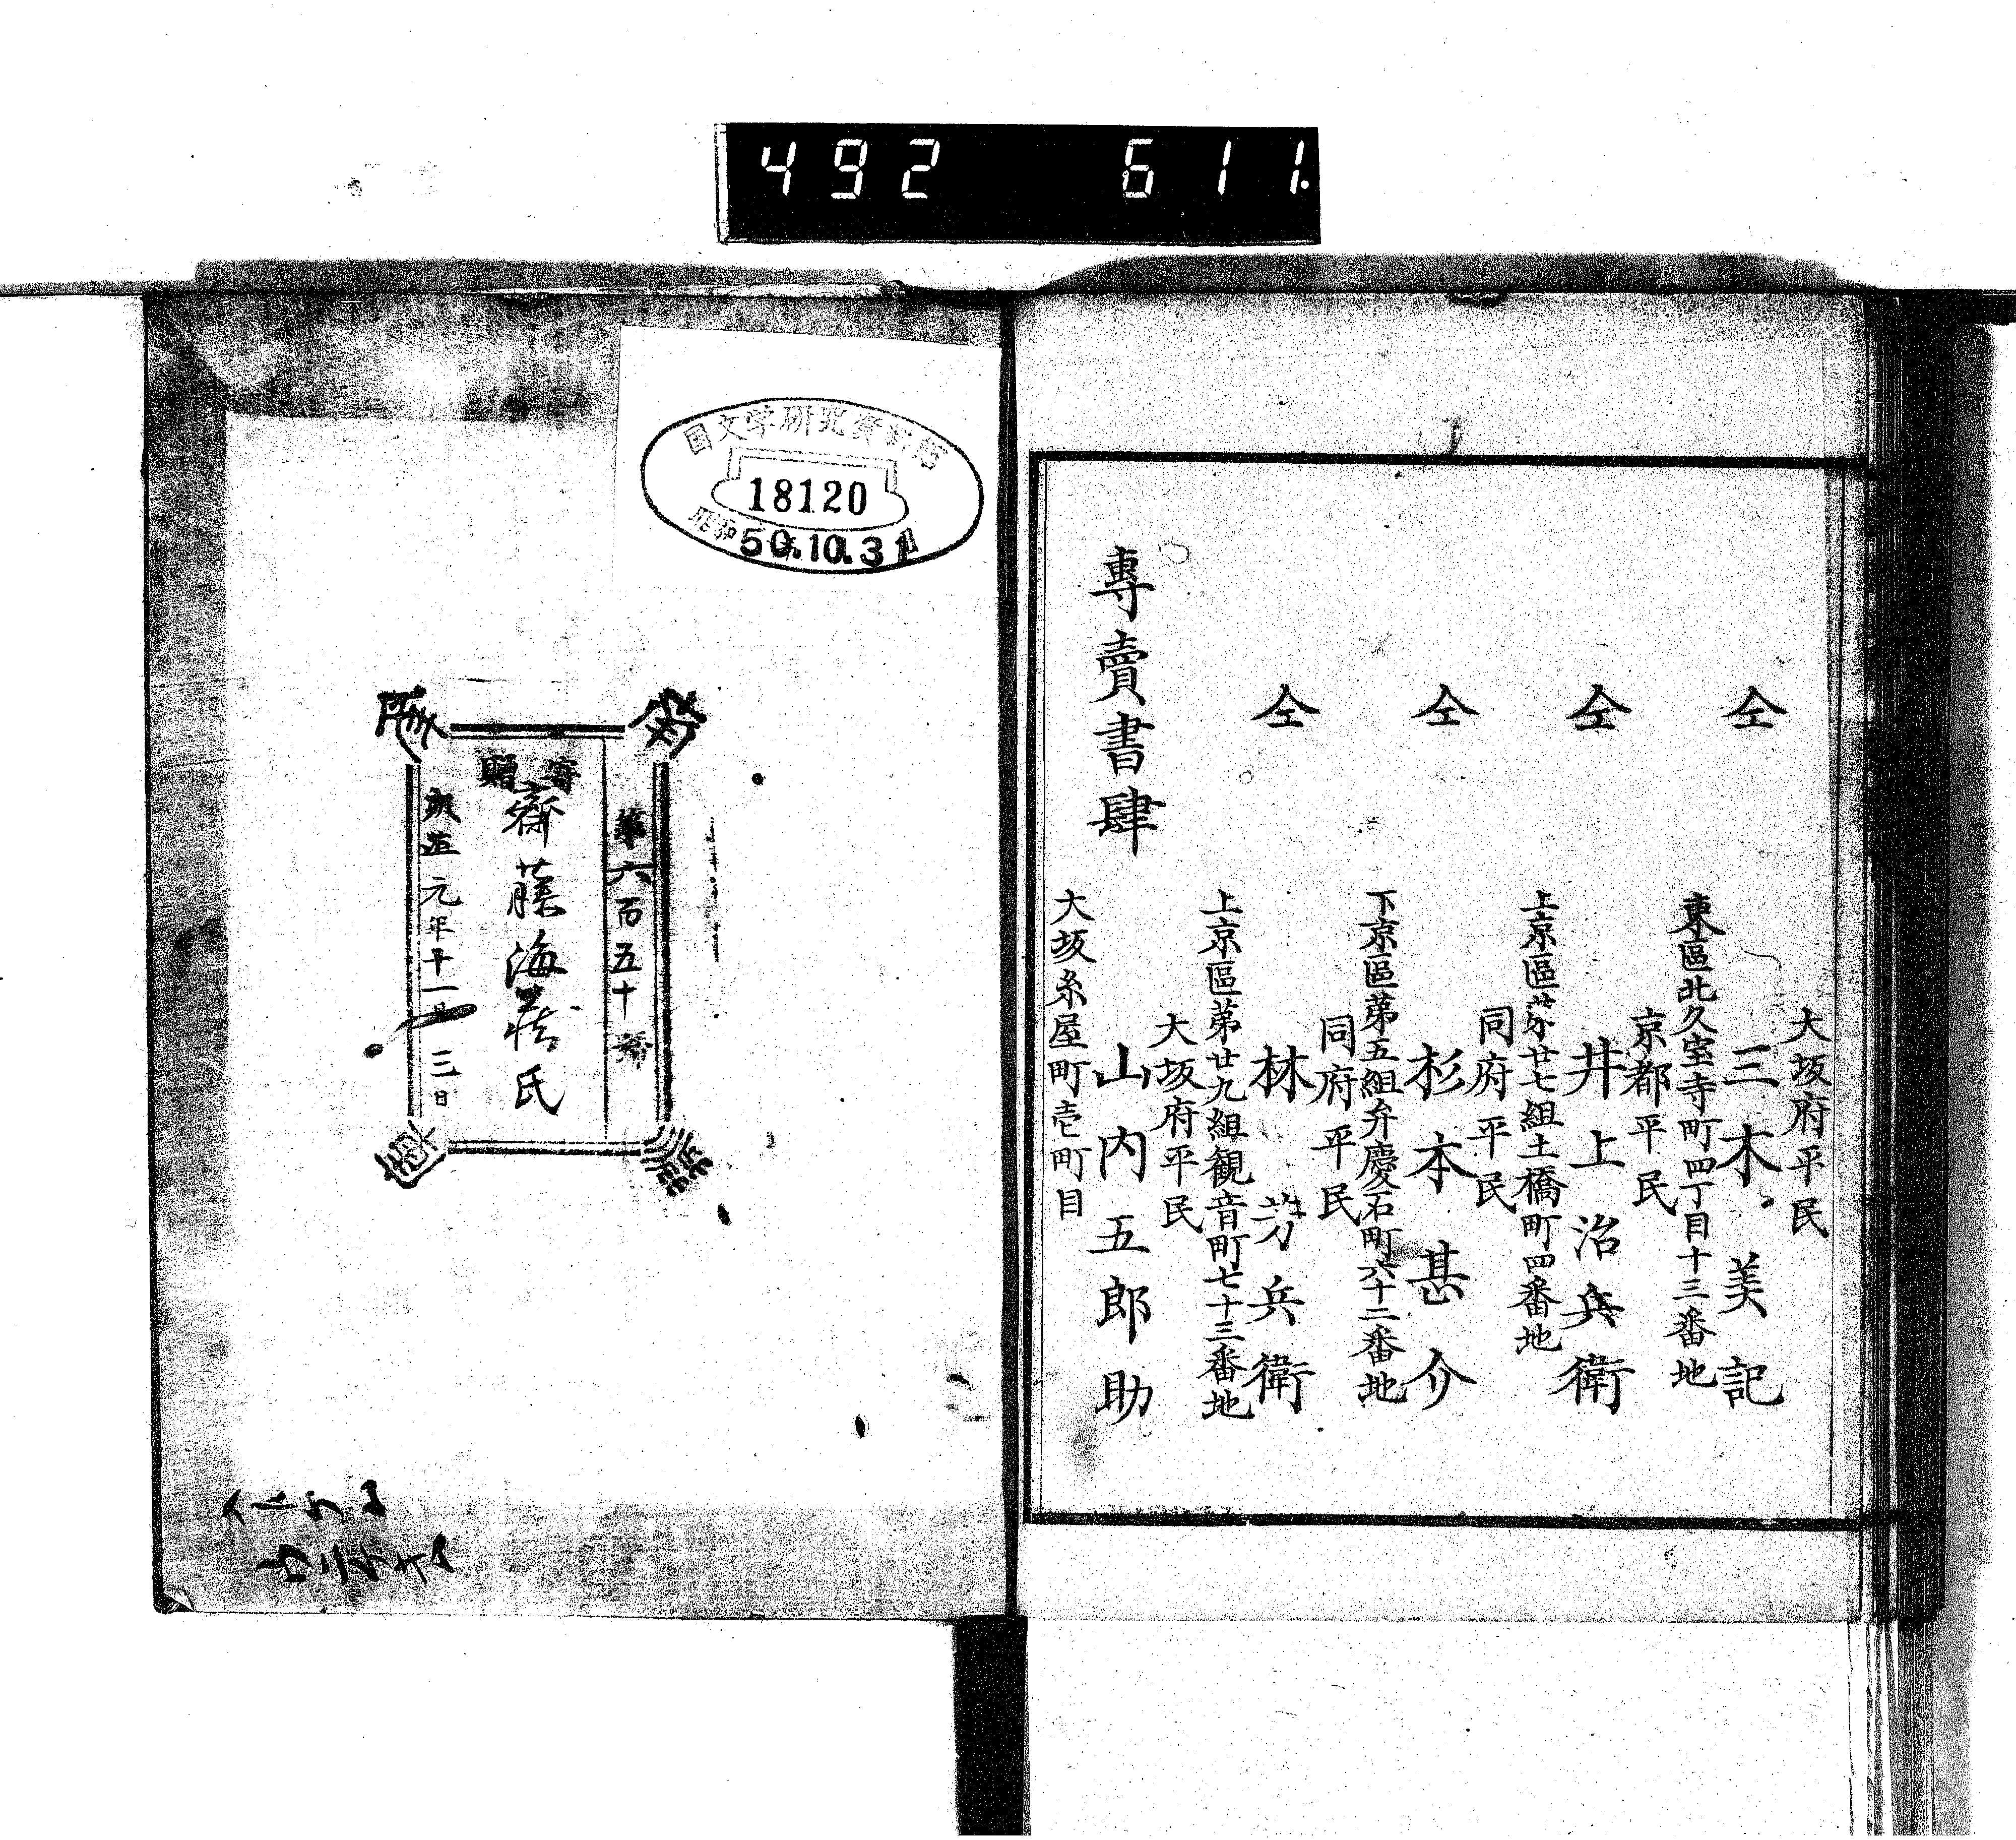 492 611.
大坂府平民
仝 三木美記
東區北久宝寺町四丁目十三番地
京都平民
仝 井上治兵衛
上京區㐧廿七組土橋町四番地
同府平民
仝 杉本甚介
下京區第五組弁慶石町六十二番地
同府平民
仝 林芳兵衛
上京區第廿九組観音町七十三番地
大坂府平民
專賣書肆 山内五郎助
大坂糸屋町壱町目
国文学研究資料館
18120
昭和50.10.31
第六百五十番
寄贈
齋藤海蔵氏
元年十一月三日